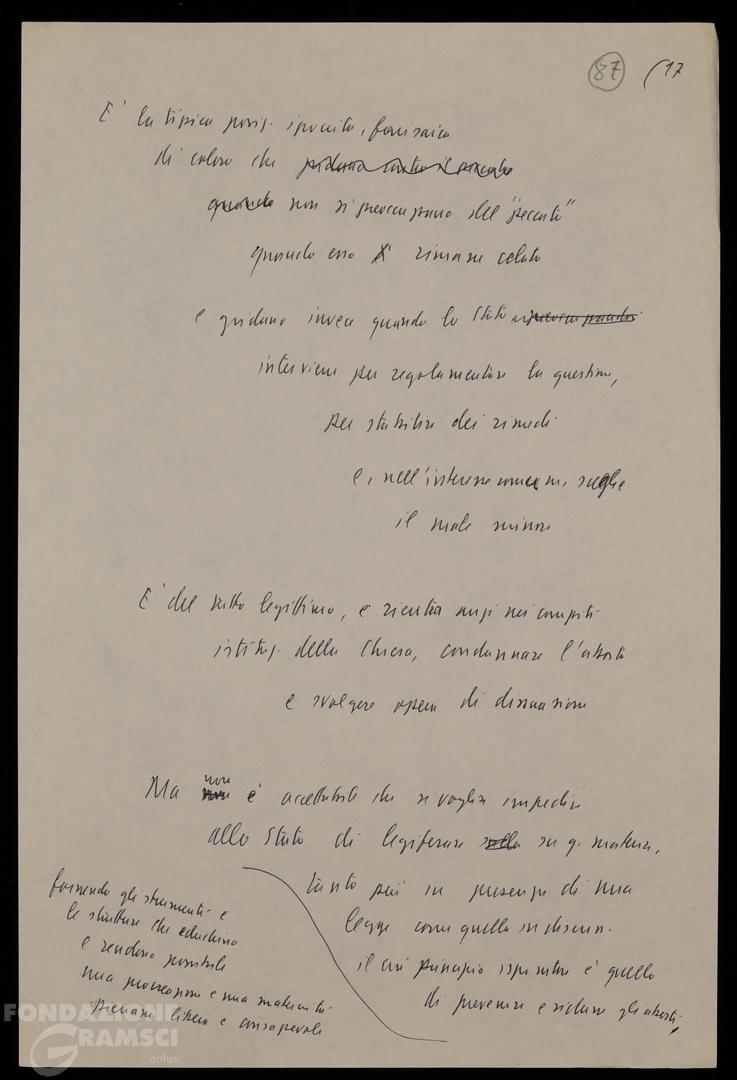 87 (17
E' la tipica posiz. ipocrita, farisaica
di coloro che gridano contro il peccato
quando non si preoccupano del "peccato"
quando esso è rimane celato
e gridano invece quando lo Stato si preoccupa
interviene per regolamentare la questione,
per stabilire dei rimedi
e, nell'interesse comune, sceglie
il male minore
E' del tutto legittimo, e rientra anzi nei compiti
istituz. della Chiesa, condannare l'aborto
e svolgere opera di dissuasione
non
Ma non è accettabile che si voglia impedire
allo Stato di legiferare sulla su q. materia,
tanto più in presenza di una
legge come quella in discuss.
il cui principio ispiratore è quello
di prevenire e ridurre gli aborti,
fornendo gli strumenti e
le strutture che educhino
e rendano possibile
una procreazione e una maternità
pienam. libera e consapevole
FONDAZIONE
GRAMSCI
onlus